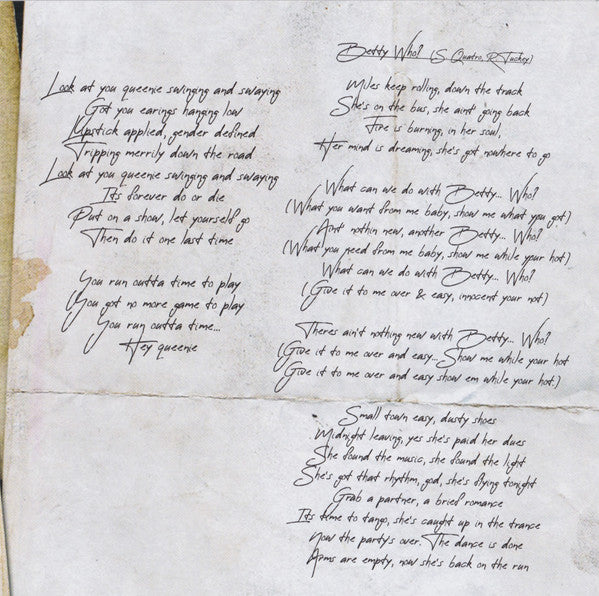 Look at you queenie swinging and swaying
Got you earings hanging low
Lipstick applied, gender defined
Tripping merrily down the road
Look at you queenie swinging and swaying
Its forever do or die
Put on a show, let yourself go
Then do it one last time
You run outta time to play
(You got no more game to play
You run outta time...
Hey queenie
Betty Who? (S Quatro, R Tuckey)
Miles keep rolling, down the track
She's on the bus, she aint going back
Fire is burning, in her soul,
Her mind is dreaming, she's got nowhere to go
What can we do with Betty... Who?
(What you want from me baby, show me what you got)
Aint nothin new, another Betty... Who?
(What you need from me baby, show me while your hot)
What can we do with Betty... Who?
(Give it to me over & easy, innocent your not)
Theres ain't nothing new with Betty... Who?
(Give it to me over and easy... Show me while your hot
Give it to me over and easy show em while your hot)
Small town easy, dusty shoes
Midnight leaving, yes she's paid her dues
She found the music, she found the light
She's got that rhythm, god, she's flying tonight
Grab a partner, a brief romance
Its time to tango, she's caught up in the trance
Now the party's over. The dance is done
Arms are empty, now she's back on the run